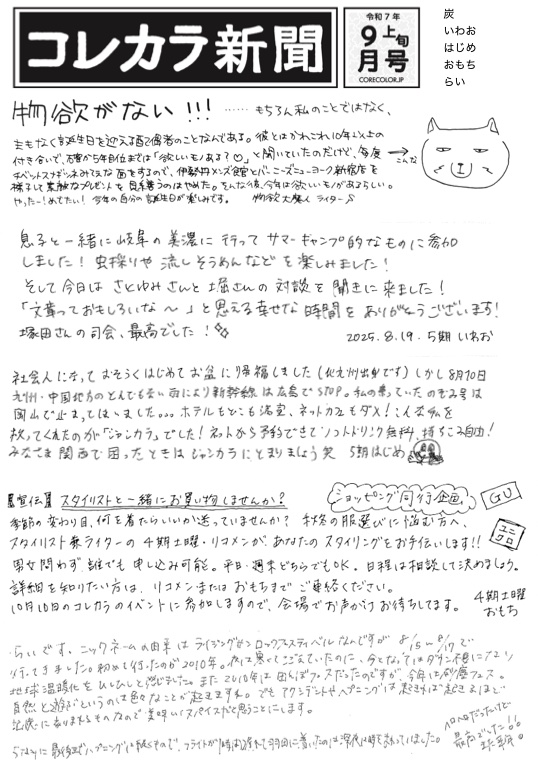 コレカラ新聞
令和7年
9月上旬号
CORECOLOR.JP
炭
いわお
はじめ
おもち
らい
物欲がない!!! …… もちろん私のことではなく、
まもなく誕生日を迎える配偶者のことなんである。彼とはかれこれ10年以上の
付き合いで、元妻から5年目位までは「欲しいモノある?♡」と聞いていたのだけど、毎度
チベットスナギツネみたいな面をするので、伊勢丹メンズ館とバーニーズニューヨーク新宿店を
梯子して素敵なプレゼントを見繕うのはやめた。そんな今、今年は欲しいモノがあるらしい。
やったー!めでたい! 今年の自分の誕生日が楽しみです。 物欲大魔人 ライター♪
→
こんな
息子と一緒に岐阜の美濃に行ってサマーキャンプ的なものに参加
しました!虫採りや流しそうめんなどを楽しみました!
そして今日はさとゆみさんと堀さんの対談を聞きに来ました!
「文章っておもしろいな〜」と思える幸せな時間をありがとうございます!
塚田さんの司会、最高でした!
2025.8.19. 5期いわお
社会人になっておそらくはじめてお盆に帰福しました(北九州出身です)しかし8月10日
九州・中国地方のとんでもない雨により新幹線は広島でSTOP。私の乗っていたのぞみ号は
岡山で止まってしまいました。。。ホテルもどこも満室、ネットカフェもダメ!こんな私を
救ってくれたのが「ジャンカラ」でした!ネットから予約できてソフトドリンク無料、持ちこみ自由!
みなさま関西で困ったときはジャンカラにとまりましょう笑 5期はじめ
【宣伝】スタイリストと一緒にお買い物しませんか?
ショッピング同行企画
GU
ユニクロ
季節の変わり目、何を着たらいいか迷っていませんか? 秋冬の服選びに悩む方へ、
スタイリスト兼ライターの4期土曜・リコメンが、あなたのスタイリングをお手伝いします!!
男女問わず誰でも申し込み可能。平日・週末どちらでもOK。日程は相談して決めましょう。
詳細を知りたい方は、リコメンまたはおもちまでご連絡ください。
10月10日のコレカラのイベントに参加しますので、会場でお声がけお待ちしてます。
4期土曜
おもち
らいです。ニックネームの由来はライジングサンロックフェスティバルなんですが 8/15〜8/17で
行ってきました。初めて行ったのが2010年。夜は寒くてこごえていたのに、今となってはダウン不要になり
地球温暖化をひしひしと感じました。また2010年は田んぼフェスだったのですが、今年は砂塵フェス。
自然と遊ぶというのは色々なことが起きますネ。でもアクシデントやハプニングは起きれば起きるほど
記憶に刻まれるものなので美味しいスパイスだと思うことにします。
ハプニングは続くもので、フライトが時間遅れで羽田に着いたのは深夜
ヘロヘロだったけど
最高でした!!